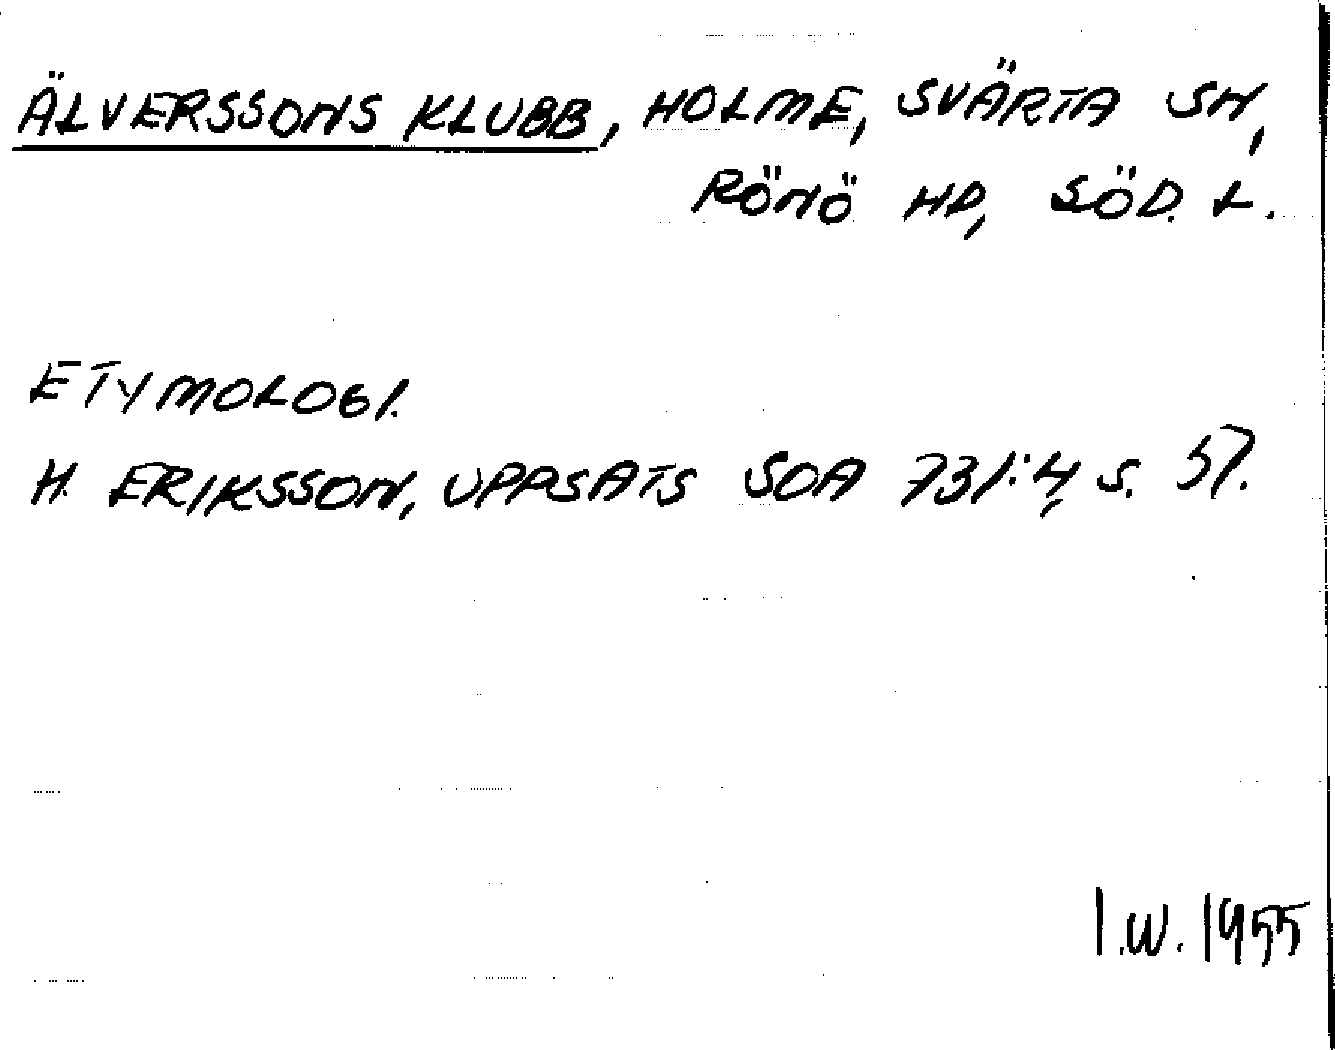 ÄLVERSSONS KLUBB, HOLME, SVÄRTA SN,
RÖNÖ HD, SÖD. L.
ETYMOLOGI.
H. ERIKSSON, UPPSATS SOA 731:4, s. 57.
I.W. 1955